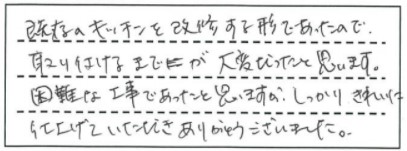 既存のキッチンを改修する形であったので、
取り付けるまでが大変だったと思います。
困難な工事であったと思いますが、しっかりきれいに
仕上げていただきありがとうございました。